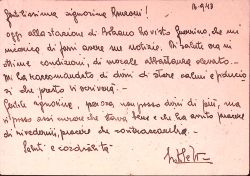 12.9.43
Gentilissima signorina
oggi alla stazione di Bolzano ho visto Guerrino, che mi
incarica di farvi avere sue notizie. Di salute era in
ottime condizioni, di morale abbastanza elevato.
Mi ha raccomandato di dirvi di stare calmi e fiduciosi
che presto vi scriverà.
Gentile signorina, per ora non posso dirvi di più, ma
vi posso assicurare che stava bene e che ha avuto piacere
di rivedermi, piacere che contraccambio.
Saluti e cordialità